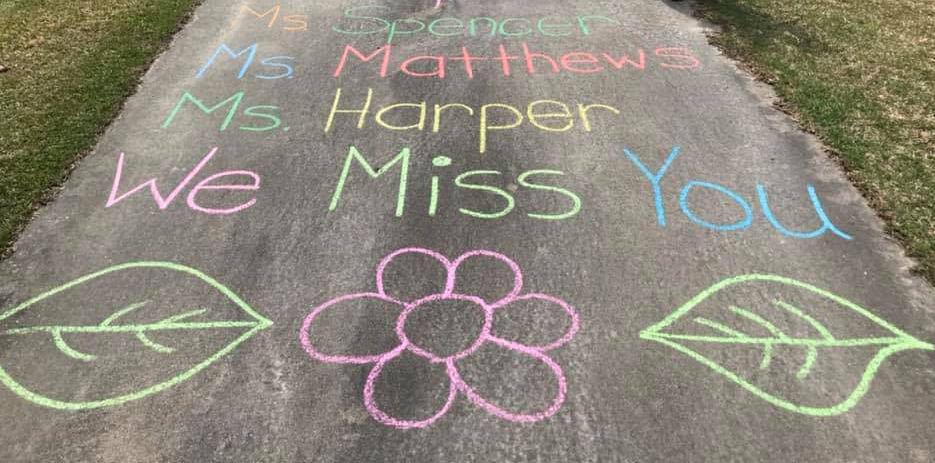 Ms Spencer
Ms. Matthews
Ms. Harper
We Miss You